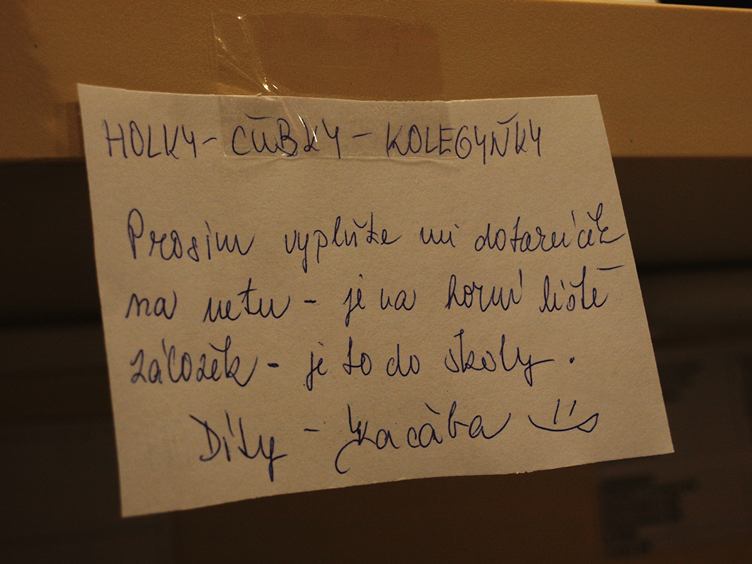 HOLKY - CŮBKY - KOLEGYŇKY
Prosím vyplňte mi dotazníček
na netu - je na horní liště
záložek - je to do školy.
Díky - Kacába